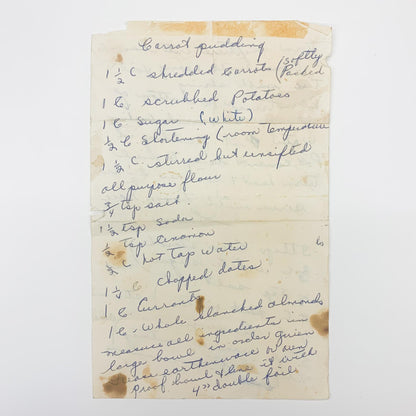 Carrot pudding
1 1/2 C shredded Carrots (softly Packed
1 C. scrubbed Potatoes
1 C Sugar (White)
1/2 C Shortening (room Tempurature
1 1/2 C. stirred but unsifted
all purpose flour
3/4 tsp salt.
1 1/2 tsp Soda
1/2 tsp Cinamon
1/2 C hot tap Water
1 1/2 C chopped dates
1 C Currants
1 C. Whole blanched almonds
measure all ingredients in
large bowl in order given
Grease earthenware or oven
proof bowl & line it with
4" double foil